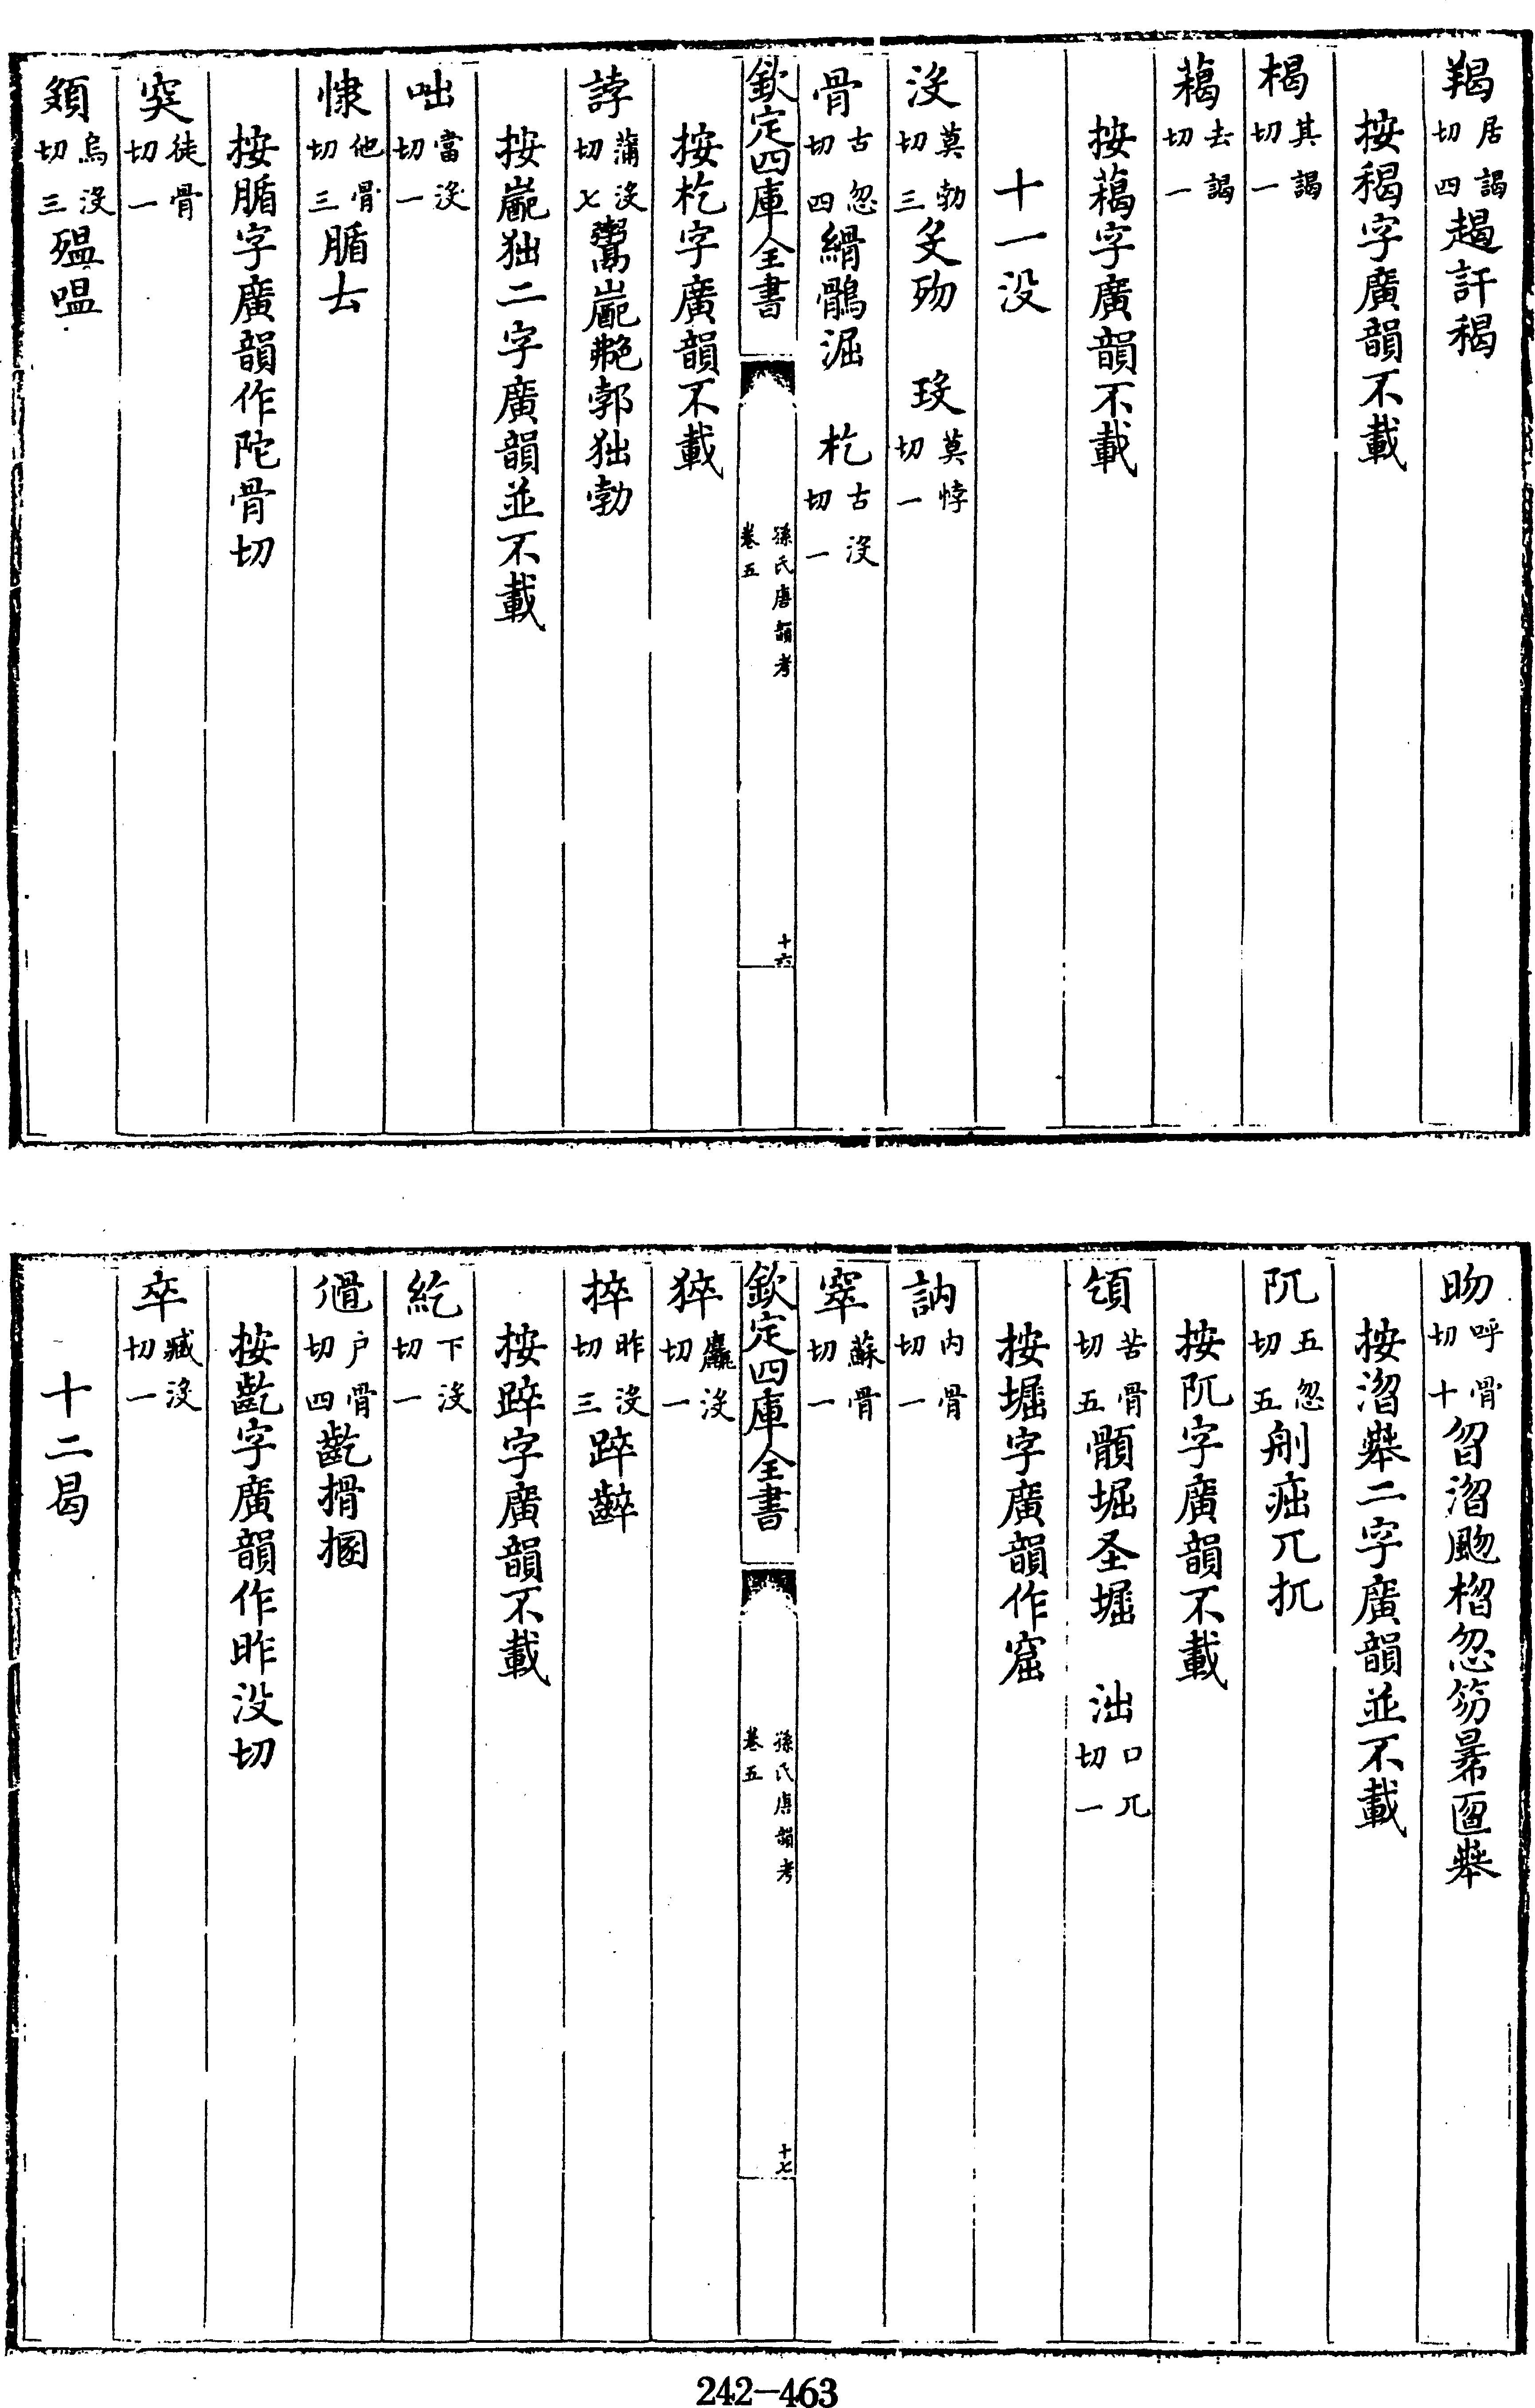 羯居謁切四趨訐䅥
按䅥字廣韻不載
楬其謁切一
藒去謁切一
按藒字廣韻不載
十一没
沒莫勃切三𠬛歾 玟莫悖切一
骨古忽切四縎鶻淈 杚古沒切一
欽定四庫全書
孫氏唐韻考
卷五
十六
按杚字廣韻不載
誖蒲沒切七鬻㔜艴郣㹀勃
按㔜㹀二字廣韻並不載
咄當沒切一
㥆他骨切三腯𠫓
按腯字廣韻作陀骨切
突徒骨切一
頞烏沒切三殟嗢
昒呼骨切十曶淴颮榾忽笏㫚匫㩓
按淴㩓二字廣韻並不載
阢五忽切五刖㾃兀扤
按阢字廣韻不載
䪼苦骨切五顝堀圣堀 泏口兀切一
按堀字廣韻作窟
訥內骨切一
窣蘇骨切一
欽定四庫全書
孫氏唐韻考
卷五
十七
猝麤沒切一
捽昨沒切三踤䶝
按踤字廣韻不載
紇下沒切一
㑮户骨切四齕搰捆
按齕字廣韻作昨没切
卒臧沒切一
十二曷
242-463